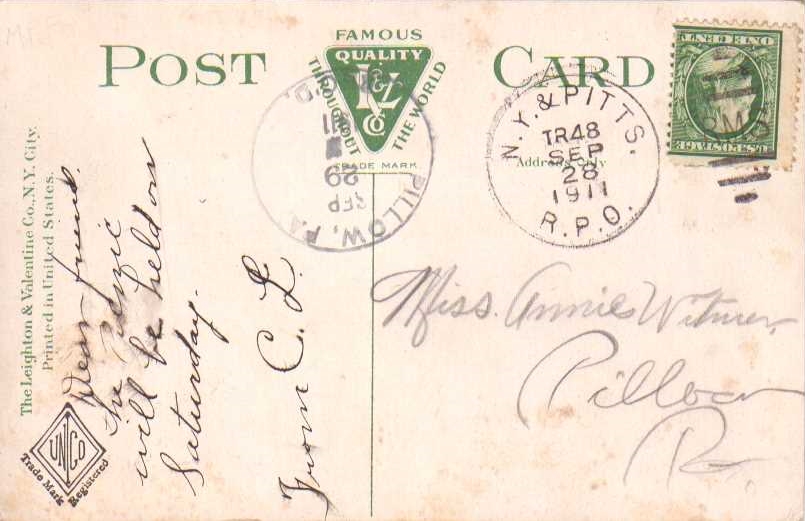 POST CARD
FAMOUS
QUALITY
THROUGHOUT THE WORLD
L&V
Co
TRADE MARK
Address Only
N.Y. & PITTS.
TR48
SEP
28
1911
R.P.O.
PILLOW, PA
SEP
29
11
RMS
U.S. POSTAGE
ONE CENT
The Leighton & Valentine Co., N.Y. City.
Printed in United States.
UNCO
Trade Mark Registered
Dear friend.
the picnic
will be held on
Saturday.
From C. L.
Miss. Annie Witmer,
Pillow
Pa.